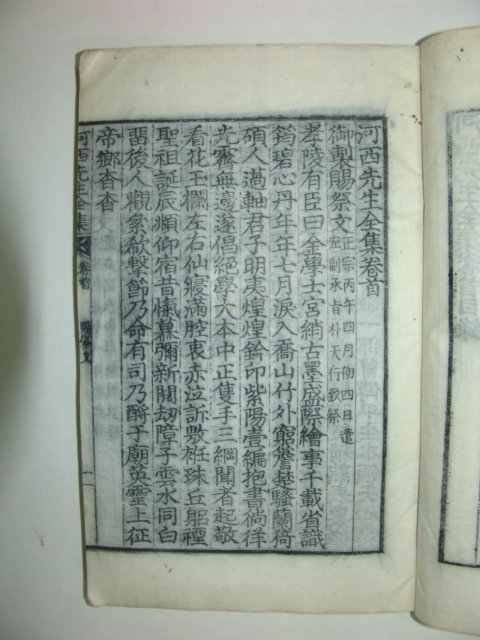 河西先生全集卷首
御製賜祭文 正宗丙午四月初四日遣
左副承旨朴天行致祭
孝陵有臣曰金學士宮綃古墨盛際繪事千載省識
筠碧心丹年年七月淚入喬山竹外窮簷楚騷蘭猗
碩人薖軸君子明夷煌煌鈐印紫陽壹編抱書徜徉
光霽無邊遂倡絕學大本中正隻手三綱聞者起敬
看花玉欄左右仙寢滿腔衷赤泣訴敷衽珠丘躬禋
聖祖誕辰順仰宿昔愾慕彌新關劫障子雲水同白
留後人觀䋣欷擊節乃命有司乃酹于廟英靈上征
帝鄉杳杳
河西先生全集 卷首
賜祭文
一